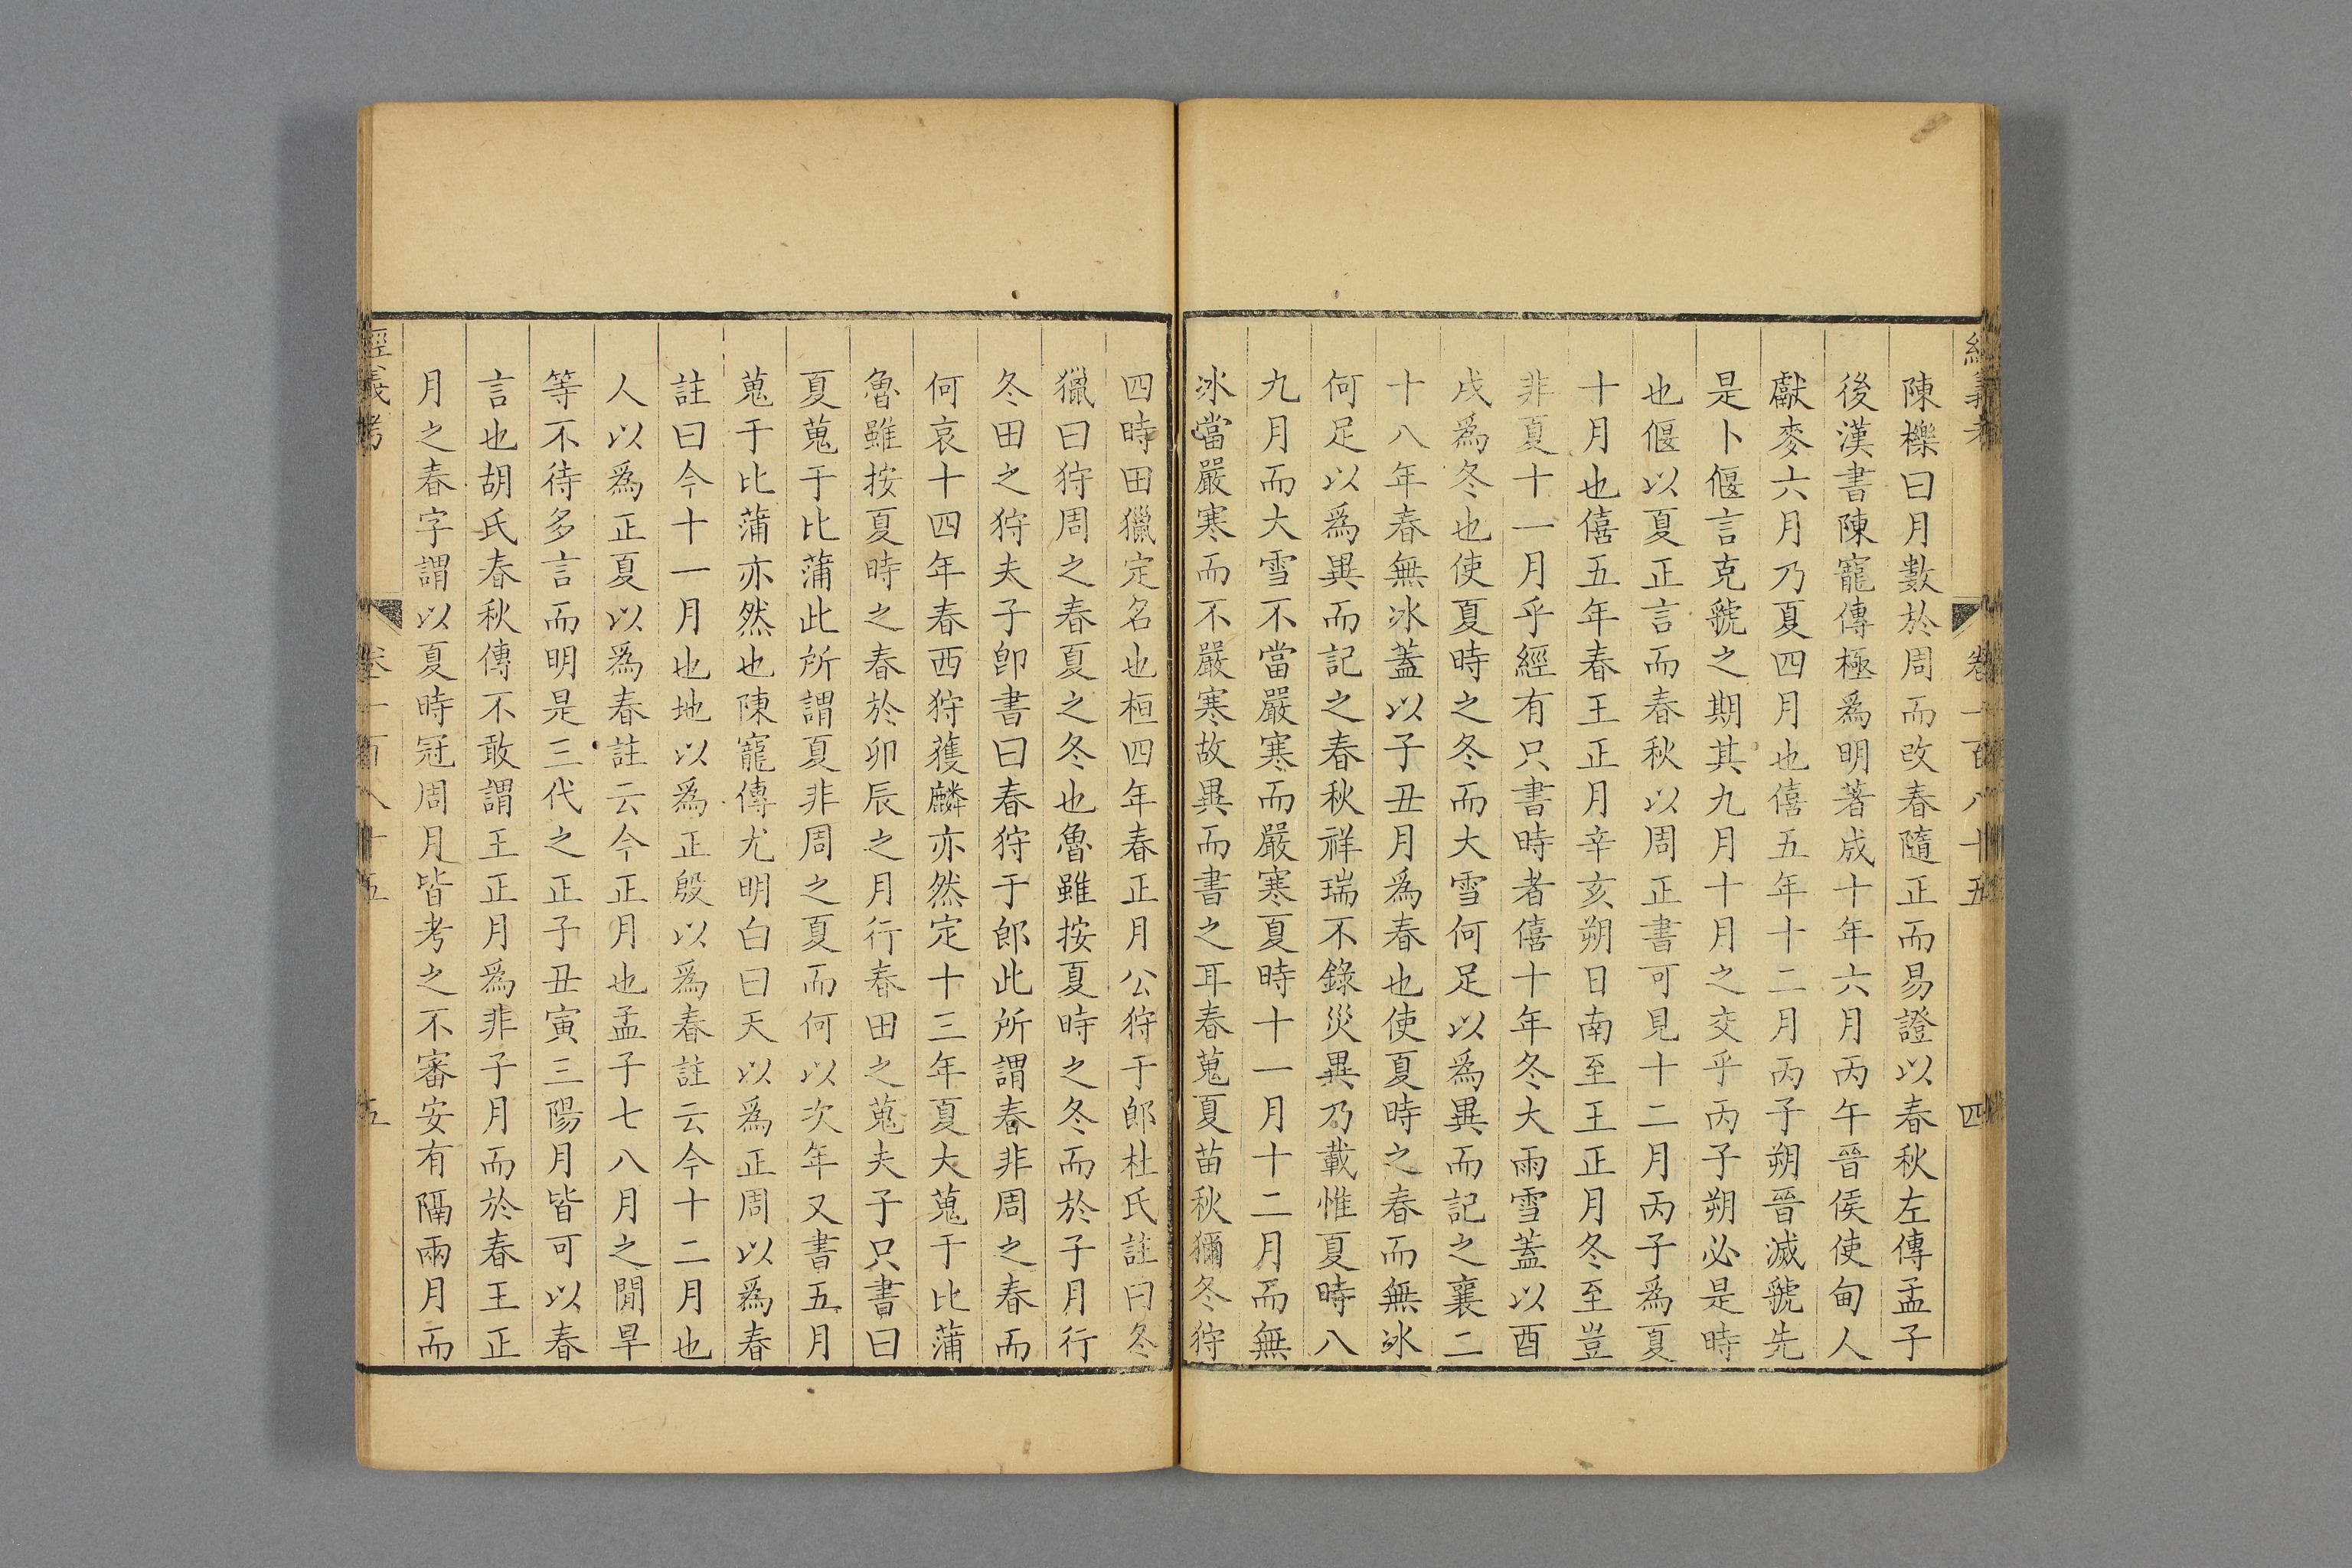 經義考 卷一百八十五 四
陳櫟曰月數於周而改春隨正而易證以春秋左傳孟子
後漢書陳寵傳極爲明著成十年六月丙午晉侯使甸人
獻麥六月乃夏四月也僖五年十二月丙子朔晉滅虢先
是卜偃言克虢之期其九月十月之交乎丙子朔必是時
也偃以夏正言而春秋以周正書可見十二月丙子爲夏
十月也僖五年春王正月辛亥朔日南至王正月冬至豈
非夏十一月乎經有只書時者僖十年冬大雨雪蓋以酉
戌爲冬也使夏時之冬而大雪何足以爲異而記之襄二
十八年春無冰蓋以子丑月爲春也使夏時之春而無冰
何足以爲異而記之春秋祥瑞不錄災異乃載惟夏時八
九月而大雪不當嚴寒而嚴寒夏時十一月十二月而無
冰當嚴寒而不嚴寒故異而書之耳春蒐夏苗秋獮冬狩
四時田獵定名也桓四年春正月公狩于郎杜氏註曰冬
獵曰狩周之春夏之冬也魯雖按夏時之冬而於子月行
冬田之狩夫子卽書曰春狩于郎此所謂春非周之春而
何哀十四年春西狩獲麟亦然定十三年夏大蒐于比蒲
魯雖按夏時之春於卯辰之月行春田之蒐夫子只書曰
夏蒐于比蒲此所謂夏非周之夏而何以次年又書五月
蒐于比蒲亦然也陳寵傳尤明白曰天以爲正周以爲春
註曰今十一月也地以爲正殷以爲春註云今十二月也
人以爲正夏以爲春註云今正月也孟子七八月之閒旱
等不待多言而明是三代之正子丑寅三陽月皆可以春
言也胡氏春秋傳不敢謂王正月爲非子月而於春王正
月之春字謂以夏時冠周月皆考之不審安有隔兩月而
經義考 卷一百八十五 五